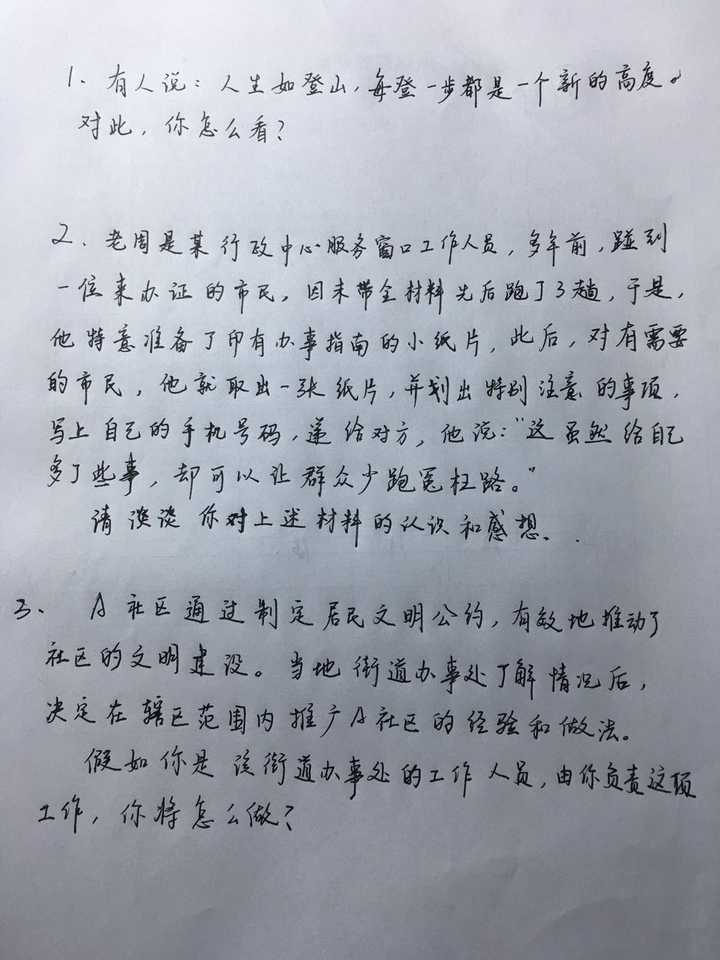 1. 有人说：人生如登山，每登一步都是一个新的高度。
对此，你怎么看？
2、老周是某行政中心服务窗口工作人员，多年前，碰到
一位来办证的市民，因未带全材料先后跑了3趟，于是，
他特意准备了印有办事指南的小纸片，此后，对有需要
的市民，他就取出一张纸片，并划出特别注意的事项，
写上自己的手机号码，递给对方，他说：“这虽然给自己
多了些事，却可以让群众少跑冤枉路。”
请谈谈你对上述材料的认识和感想。
3、A社区通过制定居民文明公约，有效地推动了
社区的文明建设。当地街道办事处了解情况后，
决定在辖区范围内推广A社区的经验和做法。
假如你是该街道办事处的工作人员，由你负责这项
工作，你将怎么做？